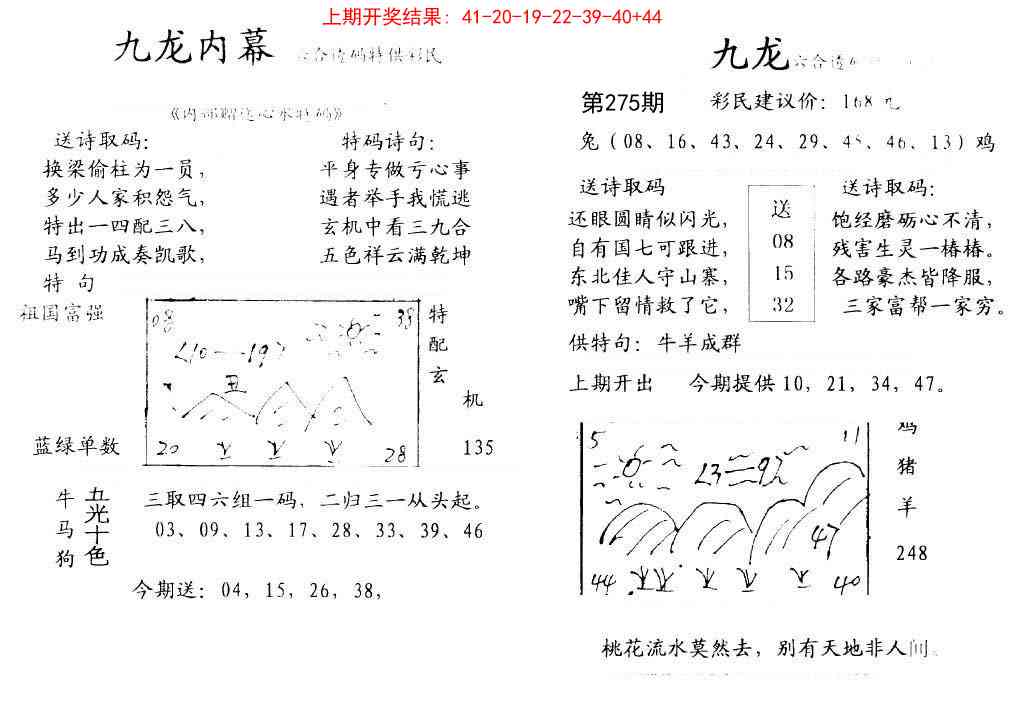 上期开奖结果：41-20-19-22-39-40+44
九龙内幕
六合透码特供彩民
送诗取码：
换梁偷柱为一员，
多少人家积怨气，
特出一四配三八，
马到功成奏凯歌，
特码诗句：
平身专做亏心事
遇者举手我慌逃
玄机中看三九合
五色祥云满乾坤
特 句
祖国富强
08
38
410—193
丑
20
28
特
配
玄
机
135
蓝绿单数
牛
马
狗
五光十色
三取四六组一码，二归三一从头起。
03、09、13、17、28、33、39、46
今期送：04，15，26，38，
九龙
六合透码
第275期
彩民建议价：168元
兔（08、16、43、24、29、45、46、13）鸡
送诗取码
还眼圆睛似闪光，
自有国七可跟进，
东北佳人守山寨，
嘴下留情救了它，
送
08
15
32
送诗取码：
饱经磨砺心不清，
残害生灵一椿椿。
各路豪杰皆降服，
三家富帮一家穷。
供特句：牛羊成群
上期开出 今期提供10，21，34，47。
5
11
47
44
40
鸡
猪
羊
248
桃花流水莫然去，别有天地非人间。